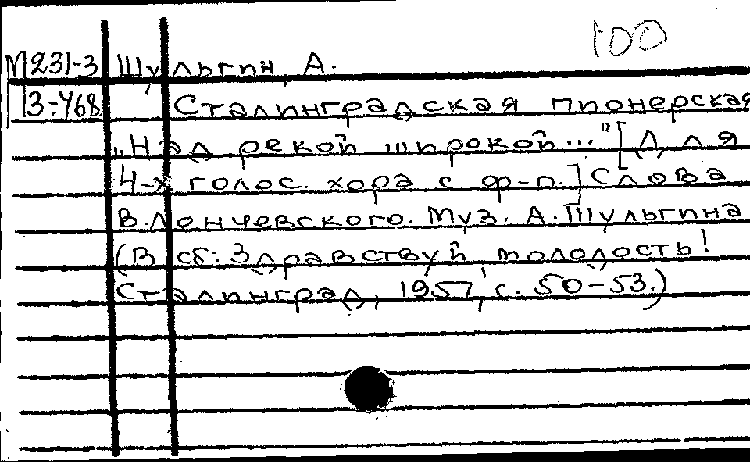 100
М231-3 Шульгин, А.
З-468 Сталинградская пионерская
„Над рекой широкой..." [Для
4-х голос. хора с ф-п.] Слова
В. Ленчевского. Муз. А. Шульгина
(В сб.: Здравствуй, молодость!
Сталинград, 1957, с. 50-53.)